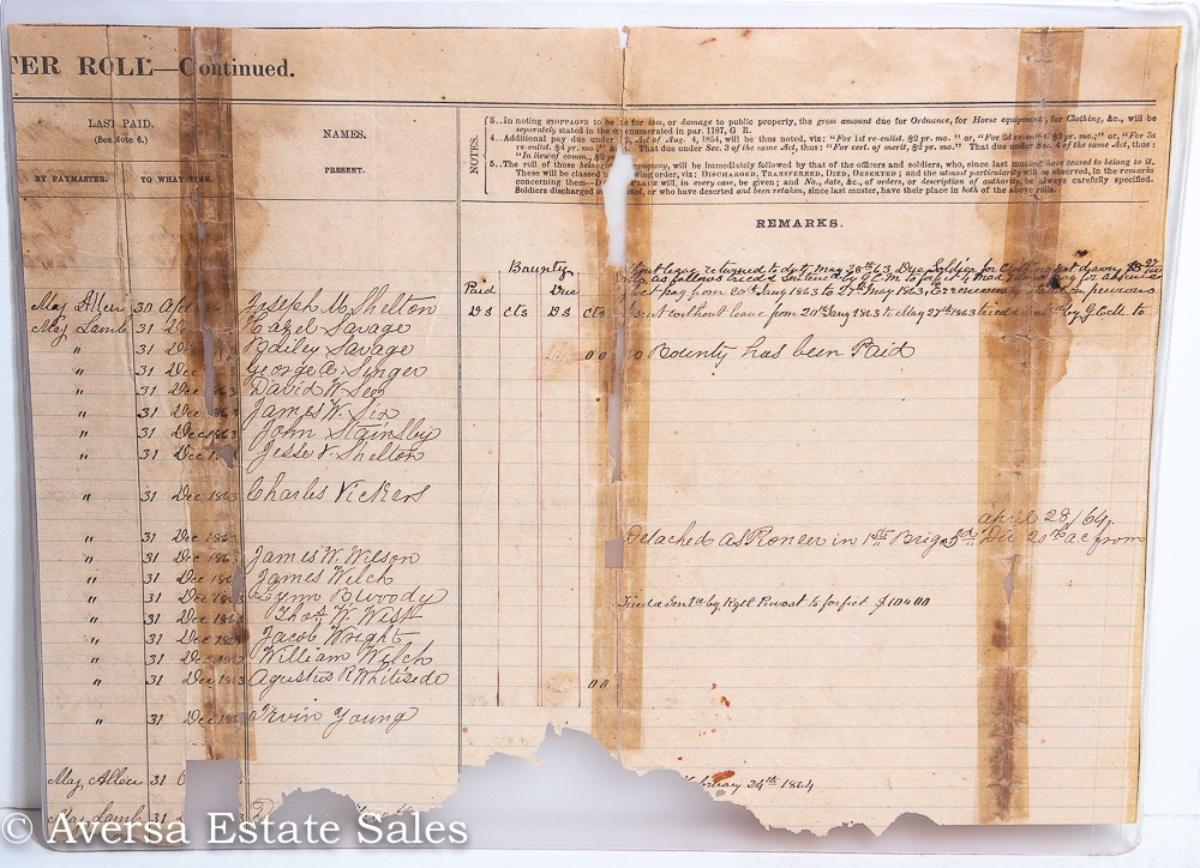 TER ROLL—Continued.
LAST PAID.
(See Note 6.)
BY PAYMASTER.
TO WHAT TIME.
NAMES.
PRESENT.
NOTES.
3..In noting STOPPAGE to be for loss, or damage to public property, the gross amount due for Ordnance, for Horse equipment, for Clothing, &c., will be
separately stated in the enumerated in par. 1187, G R.
4..Additional pay due under Act of Aug. 4, 1854, will be thus noted, viz: "For 1st re-enlist. $2 pr. mo." or, "For 2d re-enlist. $3 pr. mo;" or, "For 3s
re-enlist. $4 pr. mo;" That due under Sec. 3 of the same Act, thus: "For cert. of merit, $2 pr. mo." That due under Sec. 4 of the same Act, thus:
"In lieu of comm., $2
5..The roll of those company, will be immediately followed by that of the officers and soldiers, who, since last muster, have ceased to belong to it.
These will be classed in order, viz: DISCHARGED, TRANSFERRED, DIED, DESERTED; and the utmost particularity will be observed, in the remarks
concerning them— PLACE will, in every case, be given; and No., date, &c., of orders, or description of authority, be always carefully specified.
Soldiers discharged or who have deserted and been retaken, since last muster, have their place in both of the above rolls.
REMARKS.
Bounty
Paid Due
Ds Cts Ds Cts
out leave returned to duty May 28th 63 Due Soldier for Clothing not drawn
as follows tried & sentenced by G.C.M to forfeit
pay from 20th Jany 1863 to 27th May 1863, Erroneously
Maj Allen 30 Joseph M Shelton
without leave from 20th Jany 1863 to May 27th 1863 tried by G.C.M. to
Maj Lamb 31 Hazel Savage
" 31 Dec Bailey Savage 00 no Bounty has been Paid
" 31 Dec George A. Singer
" 31 Dec David W. See
" 31 Dec 1863 James W. Six
" 31 Dec 1863 John Stainsby
" 31 Dec Jesse V. Shelton
" 31 Dec 1863 Charles Vickers
april 28/64.
" 31 Dec Detached as Pioneer in 1st Brig 3d Div 20th ac from
" 31 Dec 1863 James W. Wilson
" 31 Dec James Welch
" 31 Dec 1863 Lynn B Woody Tried & Sentd by Regtl Provost to forfiet $10.00
" 31 Dec 1863 Thos W. West
" 31 Dec Jacob Wright
" 31 Dec William Welch
" 31 Dec 1863 Agustus R Whitiside 00
" 31 Dec Irvin Young
Maj Allen 31 February 24th 1864
Maj Lamb 31
© Aversa Estate Sales